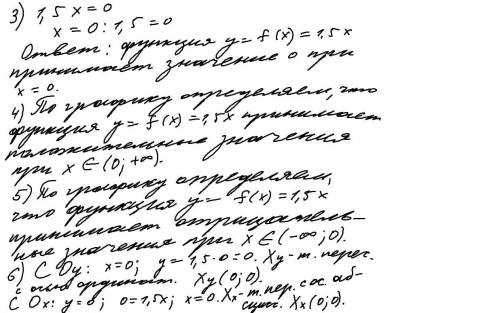 3) 1,5 x = 0
x = 0 : 1,5 = 0
Ответ: функция y = f(x) = 1,5x
принимает значение 0 при
x = 0.
4) По графику определяем, что
функция y = f(x) = 1,5x принимает
положительные значения
при x ∈ (0; +∞).
5) По графику определяем,
что функция y = f(x) = 1,5x
принимает отрицатель-
ные значения при x ∈ (-∞; 0).
6) С Oy: x=0; y = 1,5·0=0. Xy-т. перес.
с осью ординат. Xy (0; 0).
С Ox: y=0; 0=1,5x; x=0. Xx-т. пер. с ос. аб-
сцисс. Xx (0; 0).